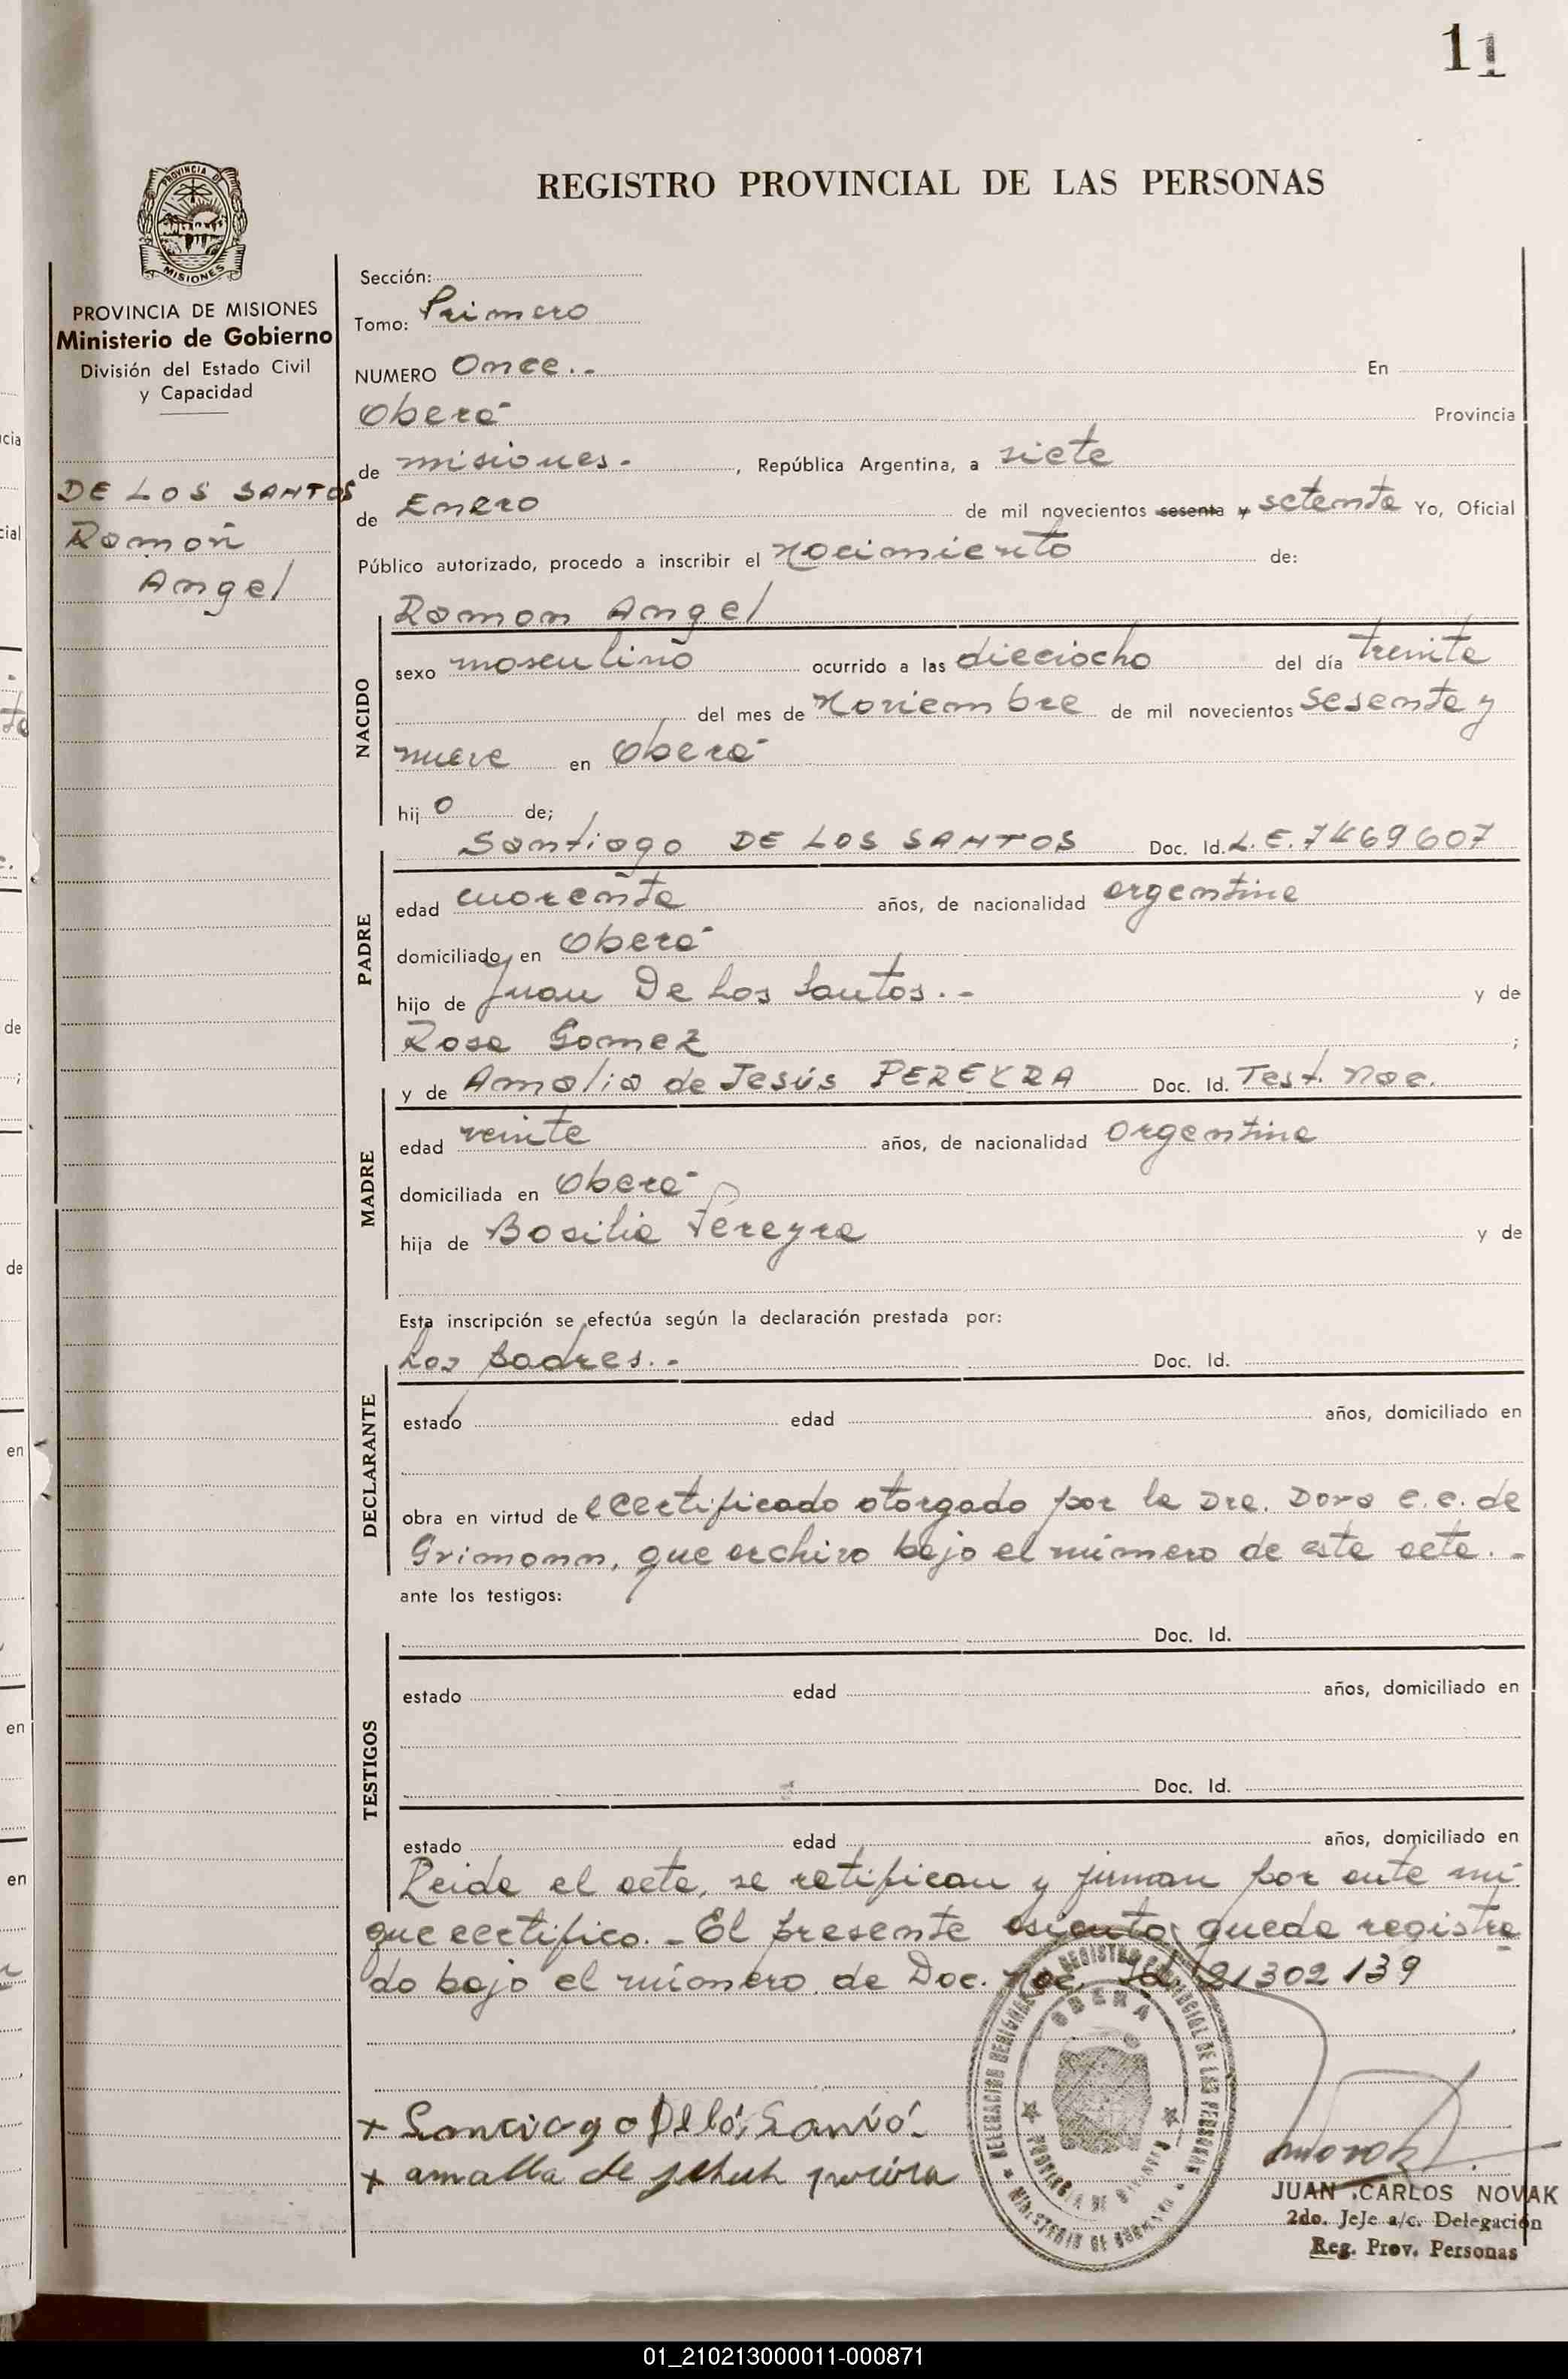 11
PROVINCIA DE
MISIONES
REGISTRO PROVINCIAL DE LAS PERSONAS
PROVINCIA DE MISIONES
Ministerio de Gobierno
División del Estado Civil
y Capacidad
DE LOS SANTOS
Ramón
Angel
Sección:
Tomo: Primero
NUMERO Once.- En
Oberá Provincia
de misiones.- , República Argentina, a siete
de Enero de mil novecientos sesenta y setenta Yo, Oficial
Público autorizado, procedo a inscribir el Nacimiento de:
NACIDO
Ramon Angel
sexo masculino ocurrido a las dieciocho del día treinta
del mes de Noviembre de mil novecientos sesenta y
nueve en Oberá
hijo de;
PADRE
Santiago DE LOS SANTOS Doc. Id. L.E. 7469607
edad cuarenta años, de nacionalidad argentina
domiciliado en Oberá
hijo de Juan De Los Santos.- y de
Rosa Gomez ;
MADRE
y de Amalia de Jesús PEREYRA Doc. Id. Test. Nac.
edad veinte años, de nacionalidad argentina
domiciliada en Oberá
hija de Basilia Pereyra y de
Esta inscripción se efectúa según la declaración prestada por:
DECLARANTE
Los padres.- Doc. Id.
estado edad años, domiciliado en
obra en virtud de certificado otorgado por la Dra. Dora C.C. de
Grimann, que archivo bajo el número de esta acta.-
ante los testigos:
TESTIGOS
Doc. Id.
estado edad años, domiciliado en
Doc. Id.
estado edad años, domiciliado en
Leida el acta, se ratifican y firman por ante mí
que certifico.- El presente asiento queda registra
do bajo el número de Doc. Nac. Id. 21302139
DELEGACION REGIONAL REGISTRO PROVINCIAL DE LAS PERSONAS
OBERA
PROVINCIA DE MISIONES
MINISTERIO DE GOBIERNO
+ Santiago De los Santos
+ amalia de jehuh pereira
JUAN CARLOS NOVAK
2do. JeJe a/c. Delegación
Reg. Prov. Personas
01_210213000011-000871